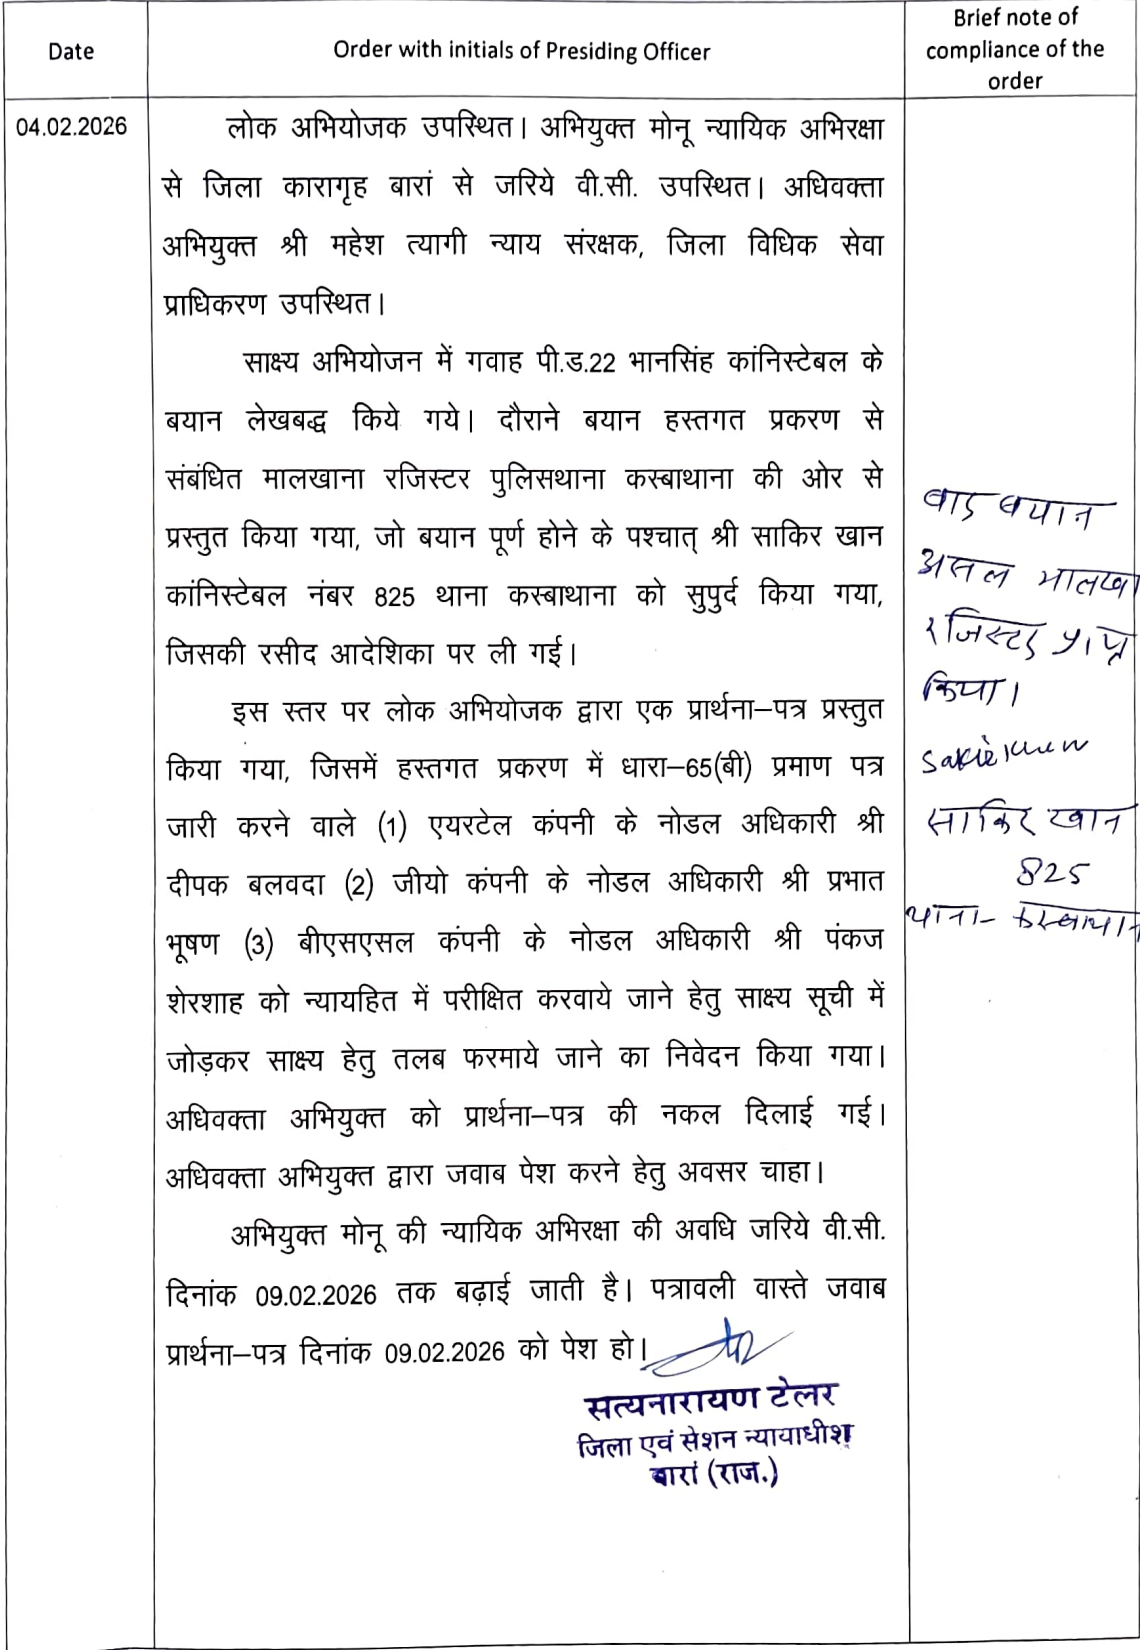 Date
Order with initials of Presiding Officer
Brief note of
compliance of the
order
04.02.2026
लोक अभियोजक उपस्थित। अभियुक्त मोनू न्यायिक अभिरक्षा
से जिला कारागृह बारां से जरिये वी.सी. उपस्थित। अधिवक्ता
अभियुक्त श्री महेश त्यागी न्याय संरक्षक, जिला विधिक सेवा
प्राधिकरण उपस्थित।
साक्ष्य अभियोजन में गवाह पी.ड.22 भानसिंह कांनिस्टेबल के
बयान लेखबद्ध किये गये। दौराने बयान हस्तगत प्रकरण से
संबंधित मालखाना रजिस्टर पुलिसथाना कस्बाथाना की ओर से
प्रस्तुत किया गया, जो बयान पूर्ण होने के पश्चात् श्री साकिर खान
कांनिस्टेबल नंबर 825 थाना कस्बाथाना को सुपुर्द किया गया,
जिसकी रसीद आदेशिका पर ली गई।
इस स्तर पर लोक अभियोजक द्वारा एक प्रार्थना–पत्र प्रस्तुत
किया गया, जिसमें हस्तगत प्रकरण में धारा–65(बी) प्रमाण पत्र
जारी करने वाले (1) एयरटेल कंपनी के नोडल अधिकारी श्री
दीपक बलवदा (2) जीयो कंपनी के नोडल अधिकारी श्री प्रभात
भूषण (3) बीएसएसल कंपनी के नोडल अधिकारी श्री पंकज
शेरशाह को न्यायहित में परीक्षित करवाये जाने हेतु साक्ष्य सूची में
जोड़कर साक्ष्य हेतु तलब फरमाये जाने का निवेदन किया गया।
अधिवक्ता अभियुक्त को प्रार्थना–पत्र की नकल दिलाई गई।
अधिवक्ता अभियुक्त द्वारा जवाब पेश करने हेतु अवसर चाहा।
अभियुक्त मोनू की न्यायिक अभिरक्षा की अवधि जरिये वी.सी.
दिनांक 09.02.2026 तक बढ़ाई जाती है। पत्रावली वास्ते जवाब
प्रार्थना–पत्र दिनांक 09.02.2026 को पेश हो।
सत्यनारायण टेलर
जिला एवं सेशन न्यायाधीश
बारां (राज.)
बाद बयान
असल मालखा
रजिस्टर प्राप्त
किया।
साकिर खान
825
थाना- कस्बाथान